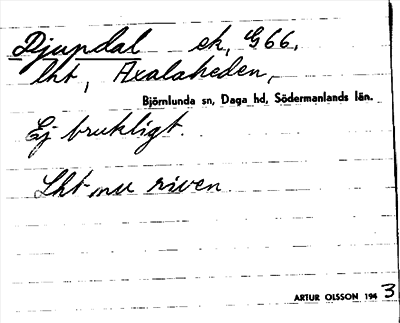 Djupdal ek, G66,
lht, Axalaheden,
Björnlunda sn, Daga hd, Södermanlands län.
Ej brukligt.
Lht nu riven.
ARTUR OLSSON 1943